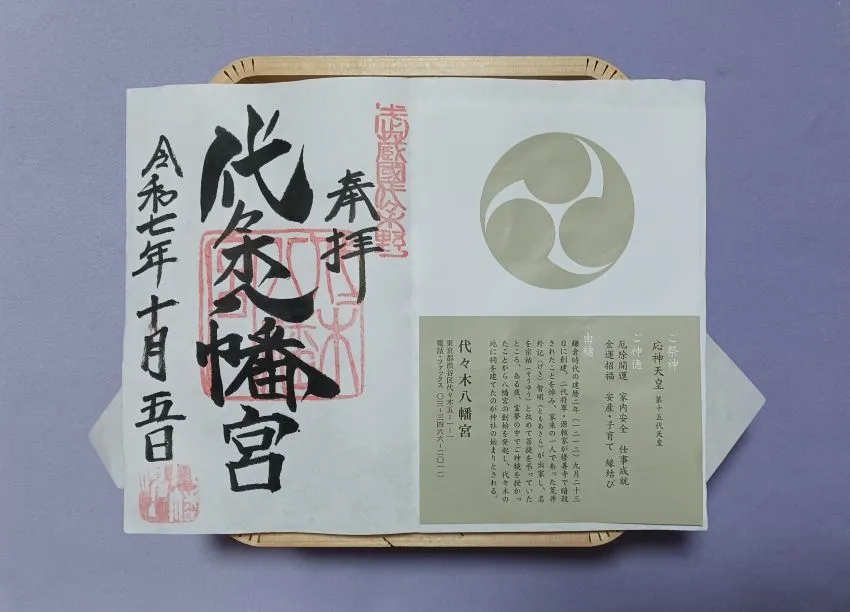 ご祭神
応神天皇 第十五代天皇
ご神徳
厄除開運 家内安全 仕事成就
金運招福 安産・子育て 縁結び
由緒
鎌倉時代の建暦二年(一二一二)九月二十三
日に創建。二代将軍・源頼家が修善寺で暗殺
されたことを悼み、家来の一人であった荒井
外記(げき)智明(ともあきら)が出家し、名
を宗祐(そうゆう)と改めて菩提を弔っていた
ところ、ある夜、霊夢の中でご神鏡を授かっ
たことから八幡宮の創始を発起し、代々木の
地に祠を建てたのが神社の始まりとされる。
代々木八幡宮
東京都渋谷区代々木五-一-一
電話・ファックス 〇三-三四六六-二〇一二
武蔵國代々木野
奉拝
代々木八幡宮
令和七年十月五日